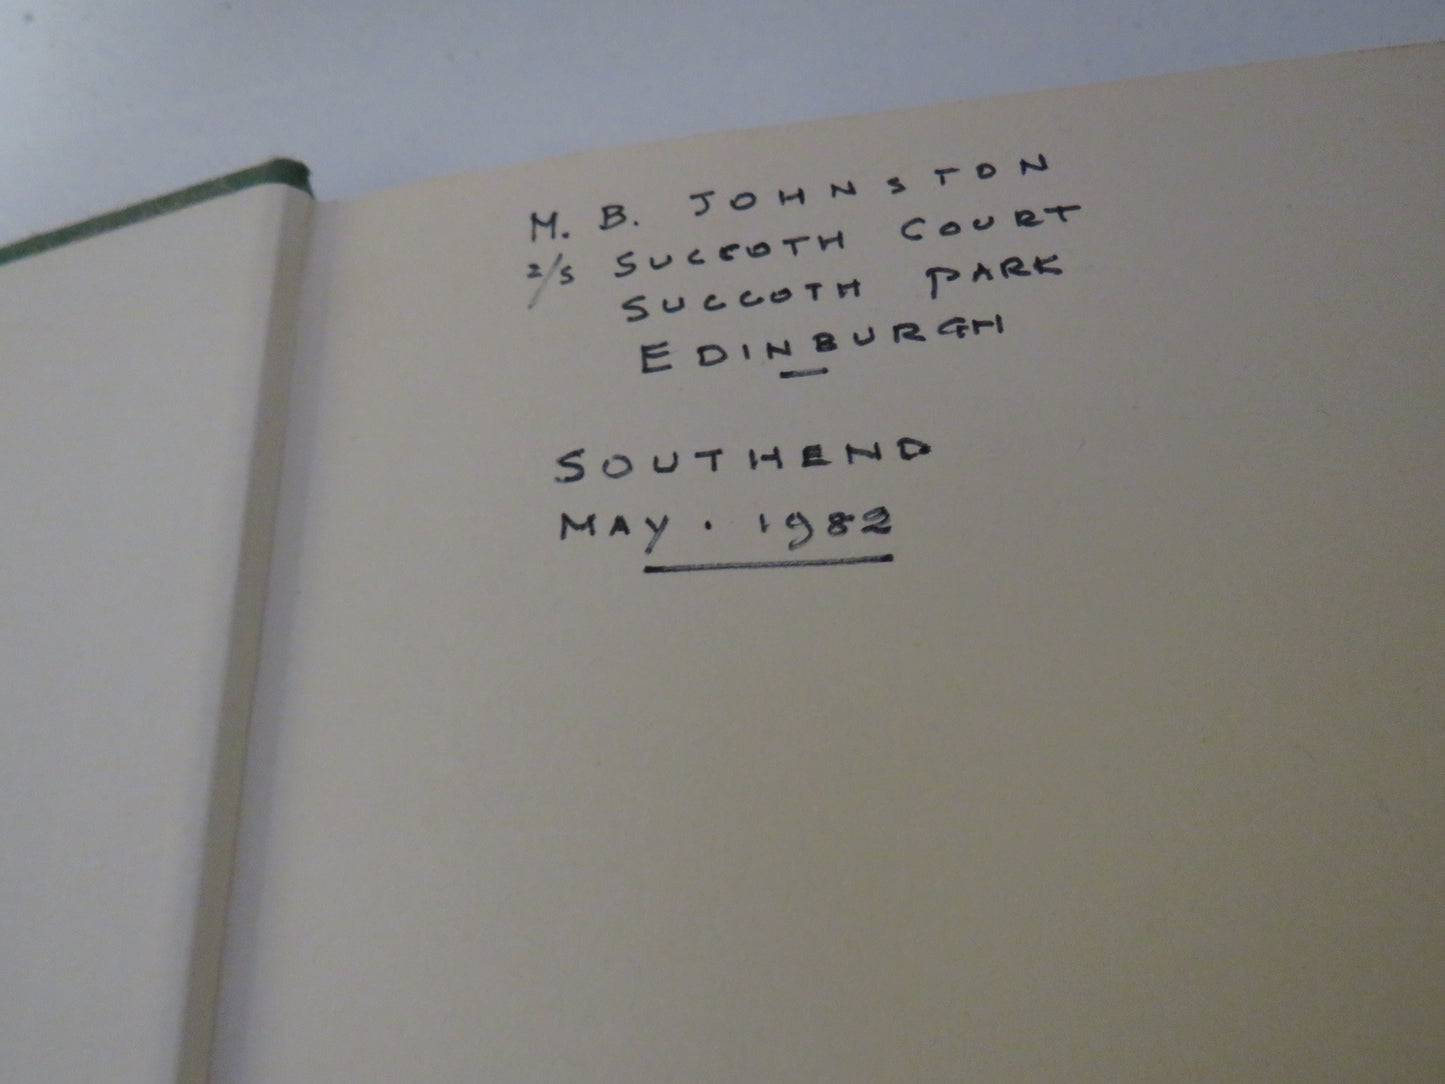 M. B. JOHNSTON
2/5 SUCCOTH COURT
SUCCOTH PARK
EDINBURGH
SOUTHEND
MAY. 1982